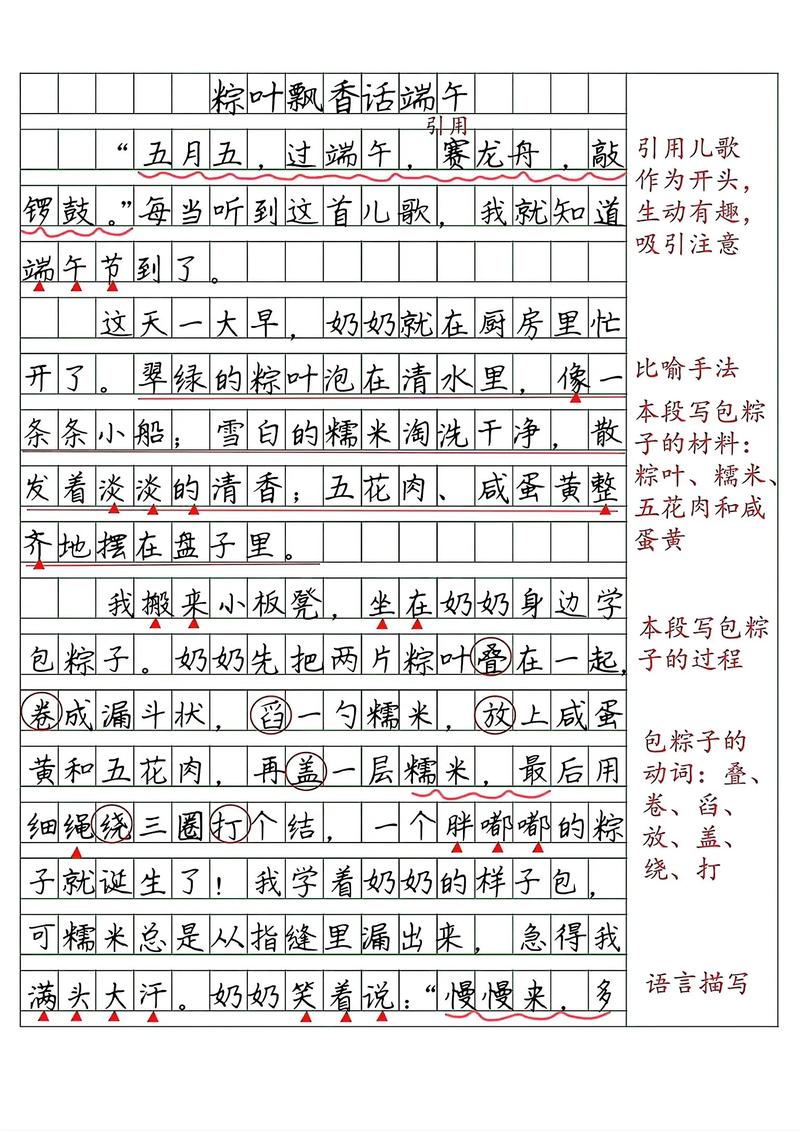 粽叶飘香话端午
引用
“五月五，过端午，赛龙舟，敲
锣鼓。”每当听到这首儿歌，我就知道
端午节到了。
这天一大早，奶奶就在厨房里忙
开了。翠绿的粽叶泡在清水里，像一
条条小船；雪白的糯米淘洗干净，散
发着淡淡的清香；五花肉、咸蛋黄整
齐地摆在盘子里。
我搬来小板凳，坐在奶奶身边学
包粽子。奶奶先把两片粽叶叠在一起，
卷成漏斗状，舀一勺糯米，放上咸蛋
黄和五花肉，再盖一层糯米，最后用
细绳绕三圈打个结，一个胖嘟嘟的粽
子就诞生了！我学着奶奶的样子包，
可糯米总是从指缝里漏出来，急得我
满头大汗。奶奶笑着说：“慢慢来，多
引用儿歌
作为开头，
生动有趣，
吸引注意
比喻手法
本段写包粽
子的材料：
粽叶、糯米、
五花肉和咸
蛋黄
本段写包粽
子的过程
包粽子的
动词：叠、
卷、舀、
放、盖、
绕、打
语言描写